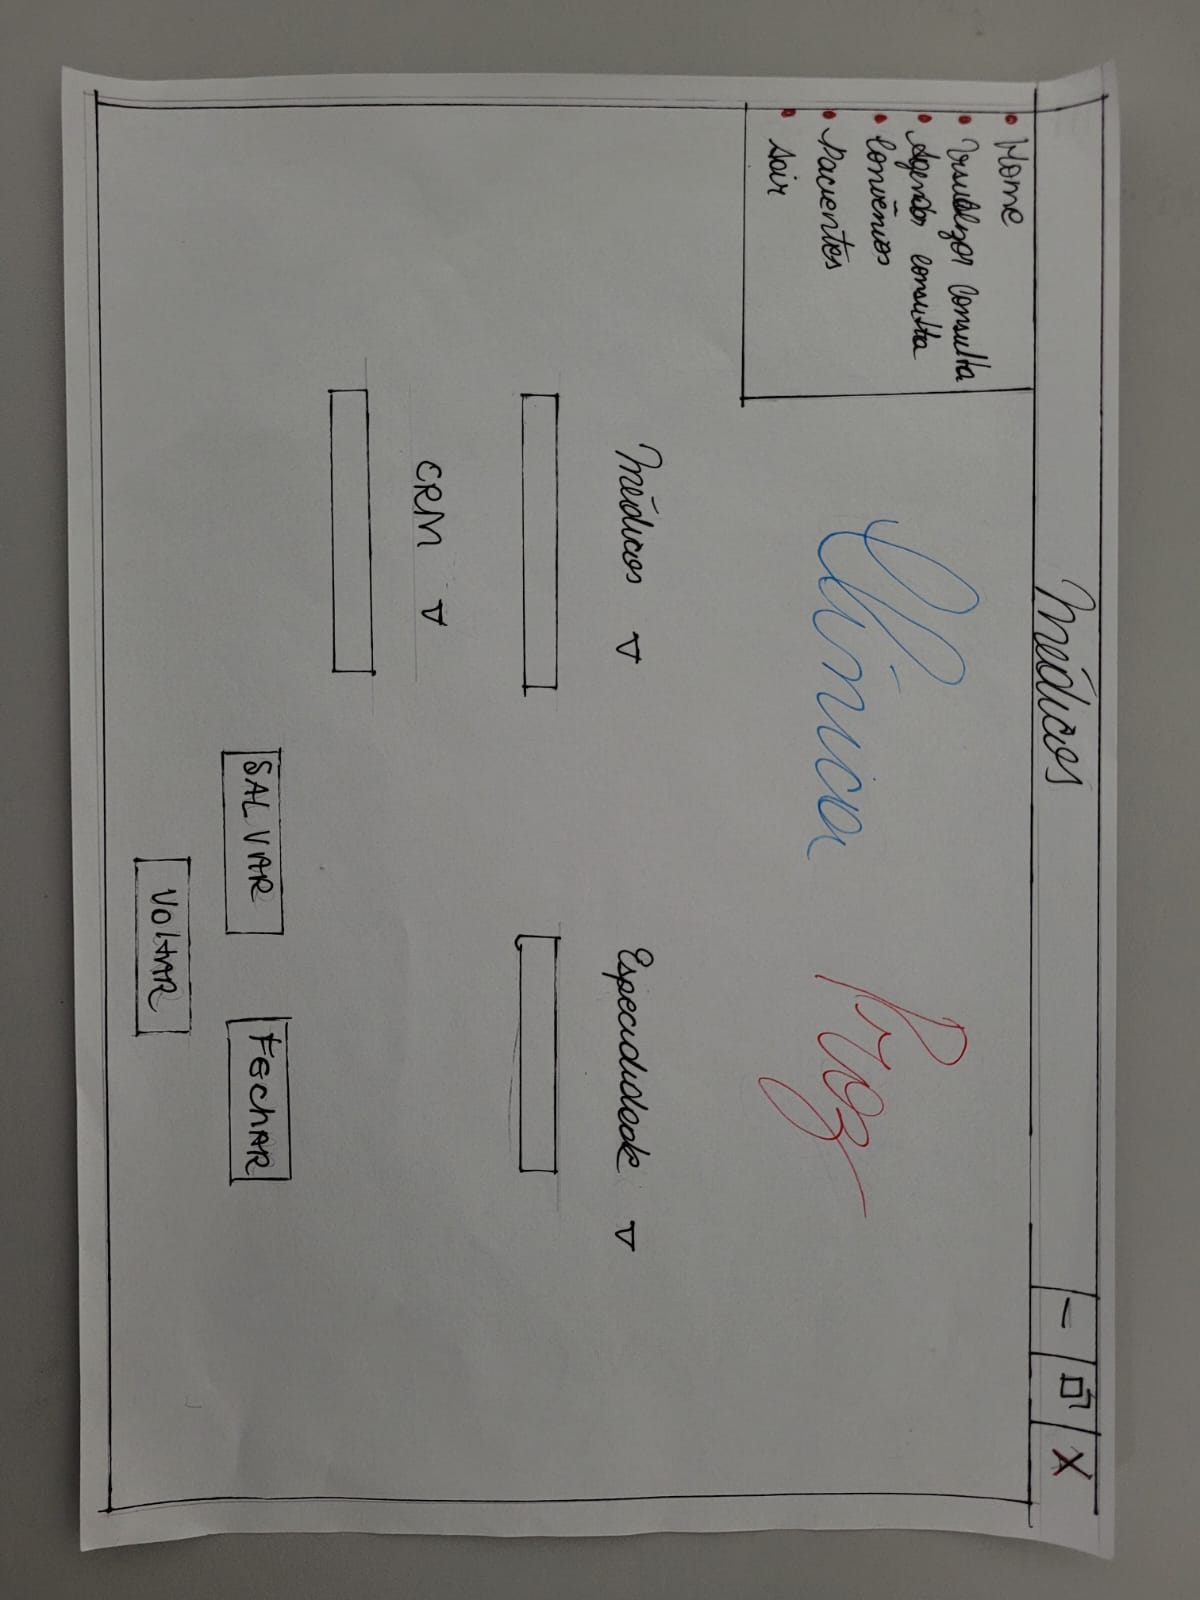 Médicos
— X
Home
Visualizar consulta
Agendar consulta
Convênios
Pacientes
Sair
Clínica Proz
Médicos Especialidade
CRM
SALVAR FECHAR
VOLTAR